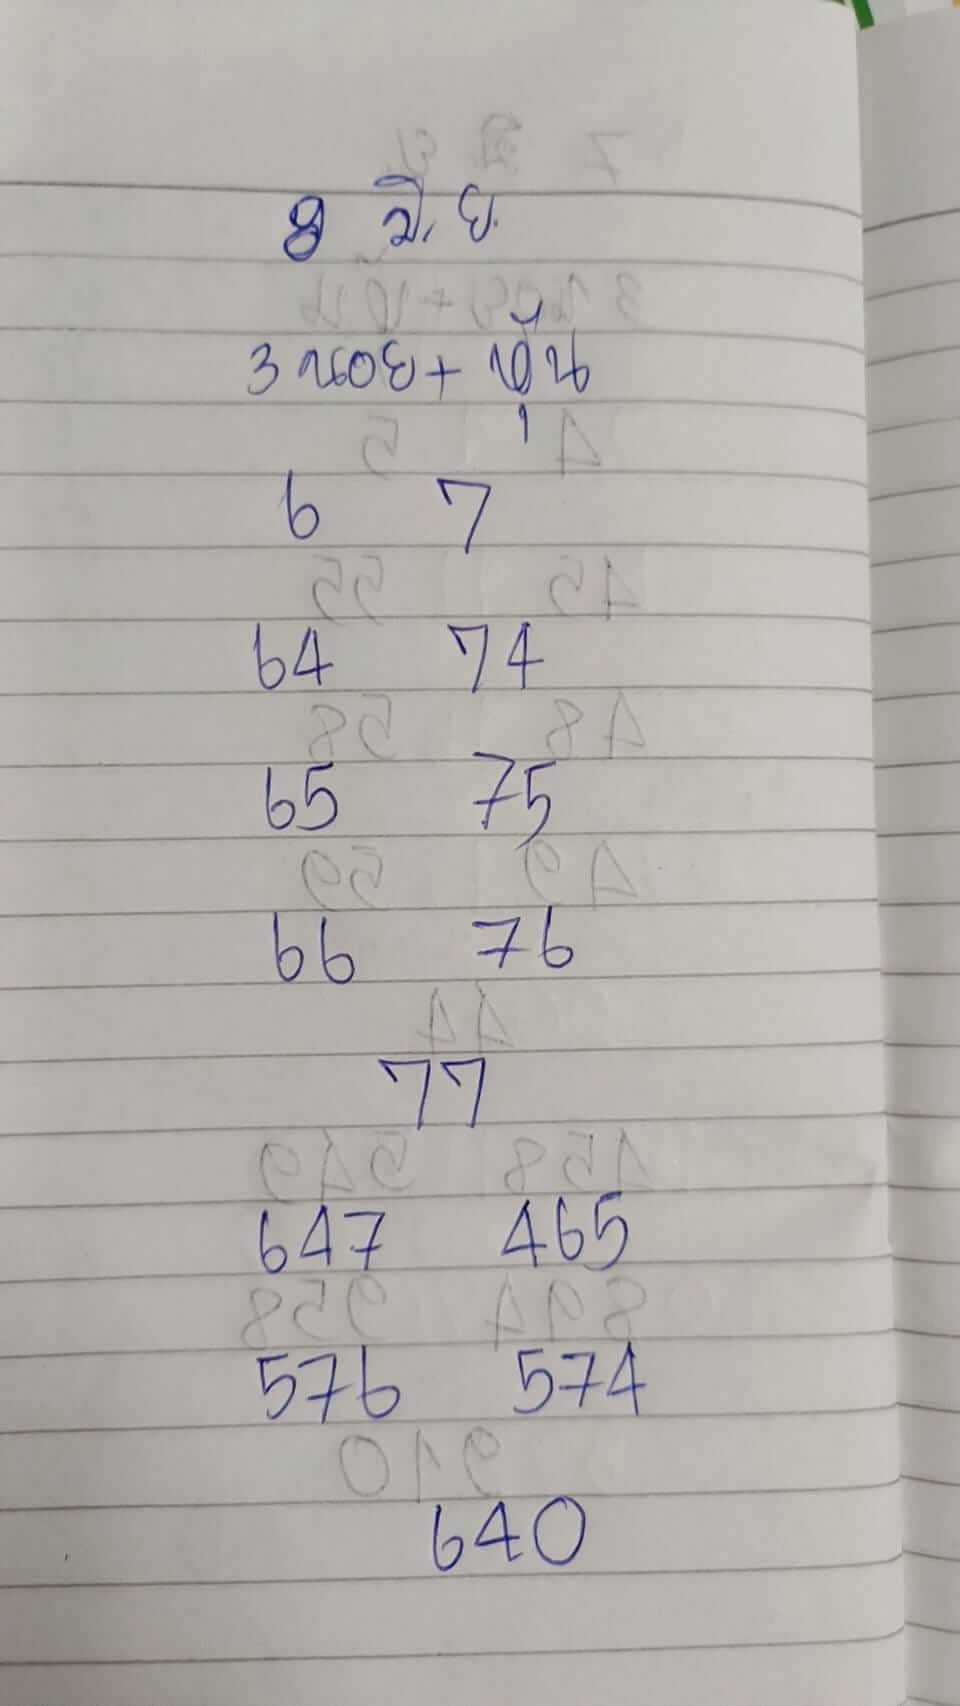 8 มิ.ย.
3 นอย + หุ้น
6 7
64 74
65 75
66 76
77
647 465
576 574
640